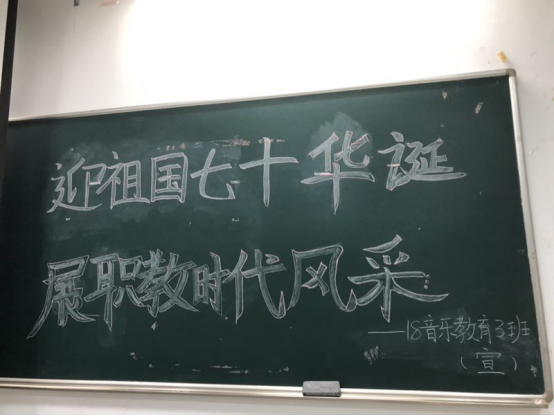 迎祖国七十华诞
展职教时代风采
——18音乐教育3班
（宣）